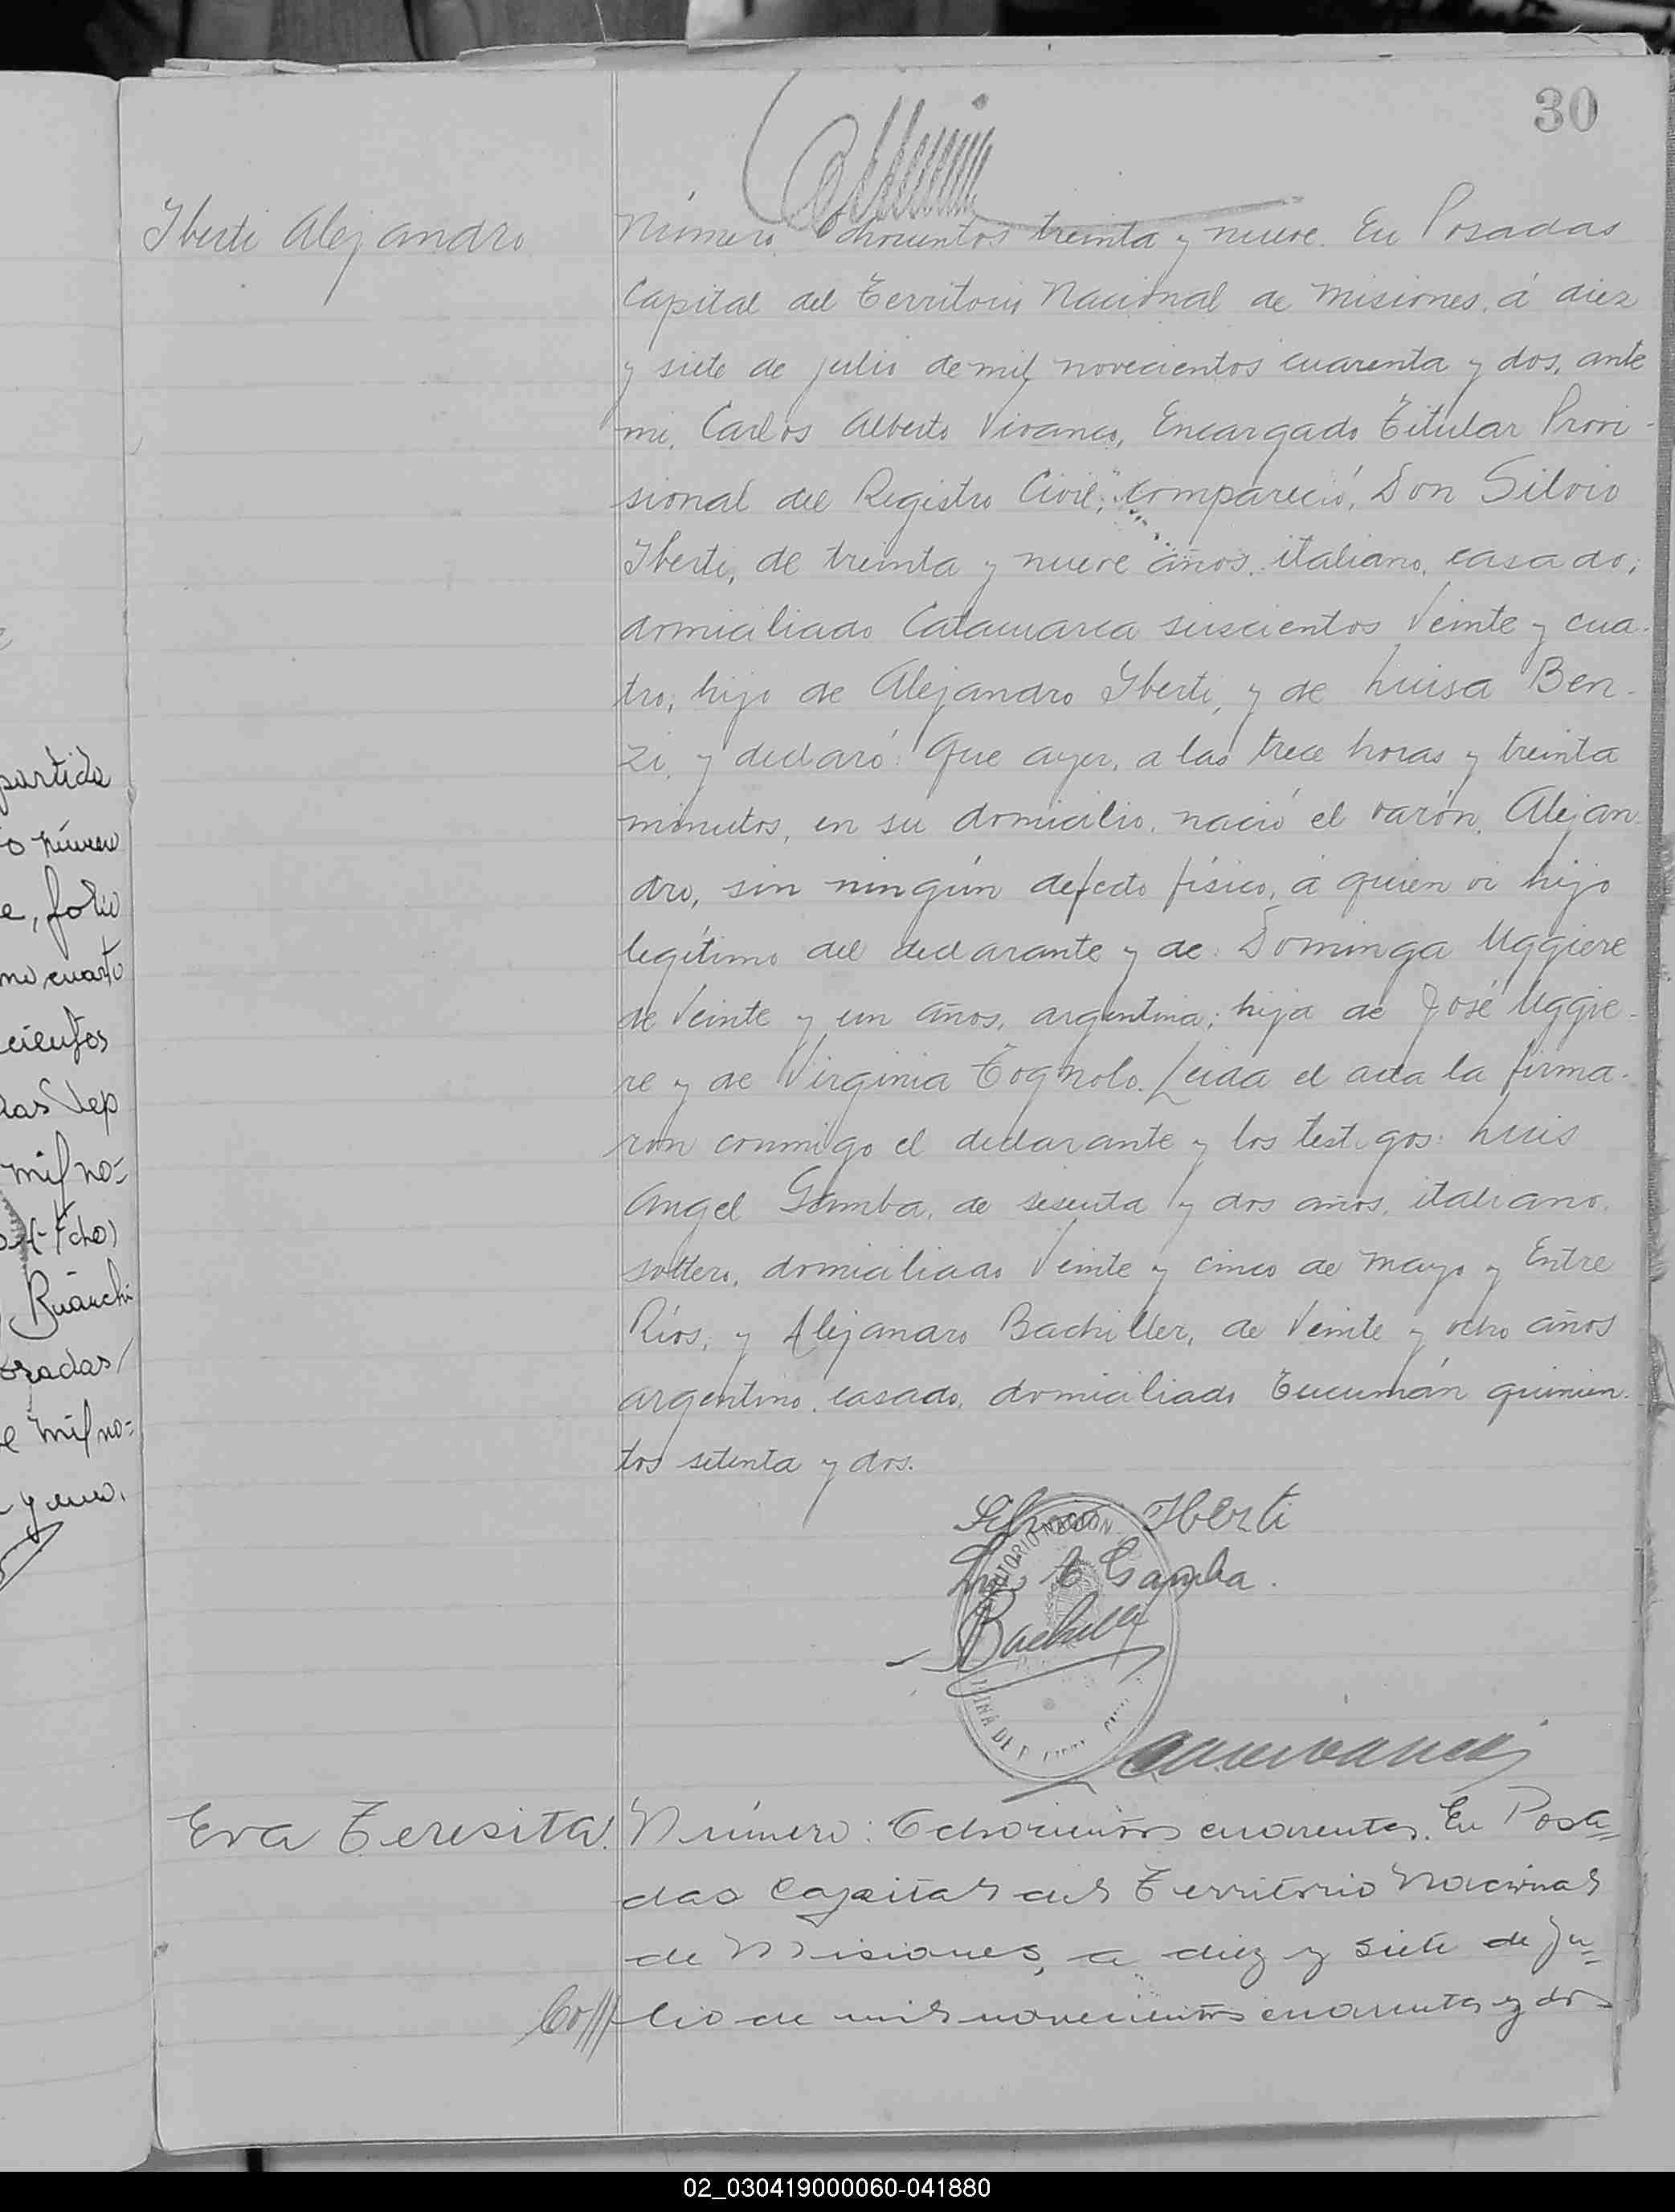 30
Iberti Alejandro
Número Ochocientos treinta y nueve. En Posadas
Capital del Territorio Nacional de Misiones, á diez
y siete de julio de mil novecientos cuarenta y dos, ante
mi, Carlos Alberto Vivanco, Encargado Titular Provi-
sional del Registro Civil; compareció, Don Silvio
Iberti, de treinta y nueve años, italiano, casado,
domiciliado Catamarca seiscientos Veinte y cua-
tro, hijo de Alejandro Iberti, y de Luisa Ben-
zi, y declaró: Que ayer, a las trece horas y treinta
minutos, en su domicilio, nació el varón, Alejan-
dro, sin ningún defecto físico, á quien vi hijo
legítimo del declarante y de: Dominga Uggiere
de Veinte y un años, argentina; hija de José Uggie-
re y de Virginia Tognolo. Leida el acta la firma-
ron conmigo el declarante y los testigos: Luis
Angel Gamba, de sesenta y dos años, italiano,
soltero, domiciliado Veinte y cinco de mayo y Entre
Ríos, y Alejandro Bachiller, de Veinte y ocho años
argentino, casado, domiciliado Tucumán quinien-
tos setenta y dos.
Silvio Iberti
Luis A Gamba.
Bachiller
Eva Teresita.
Número: Ochocientos cuarenta. En Posa=
das Capital del Territorio Nacional
de Misiones, a diez y siete de Ju=
lio de mil novecientos cuarenta y dos
partida
o número
e, folio
mo cuarto
cientos
las Sep
mil no=
(Fdo)
Bianchi
osadas/
e mil no=
y uno.
02_030419000060-041880